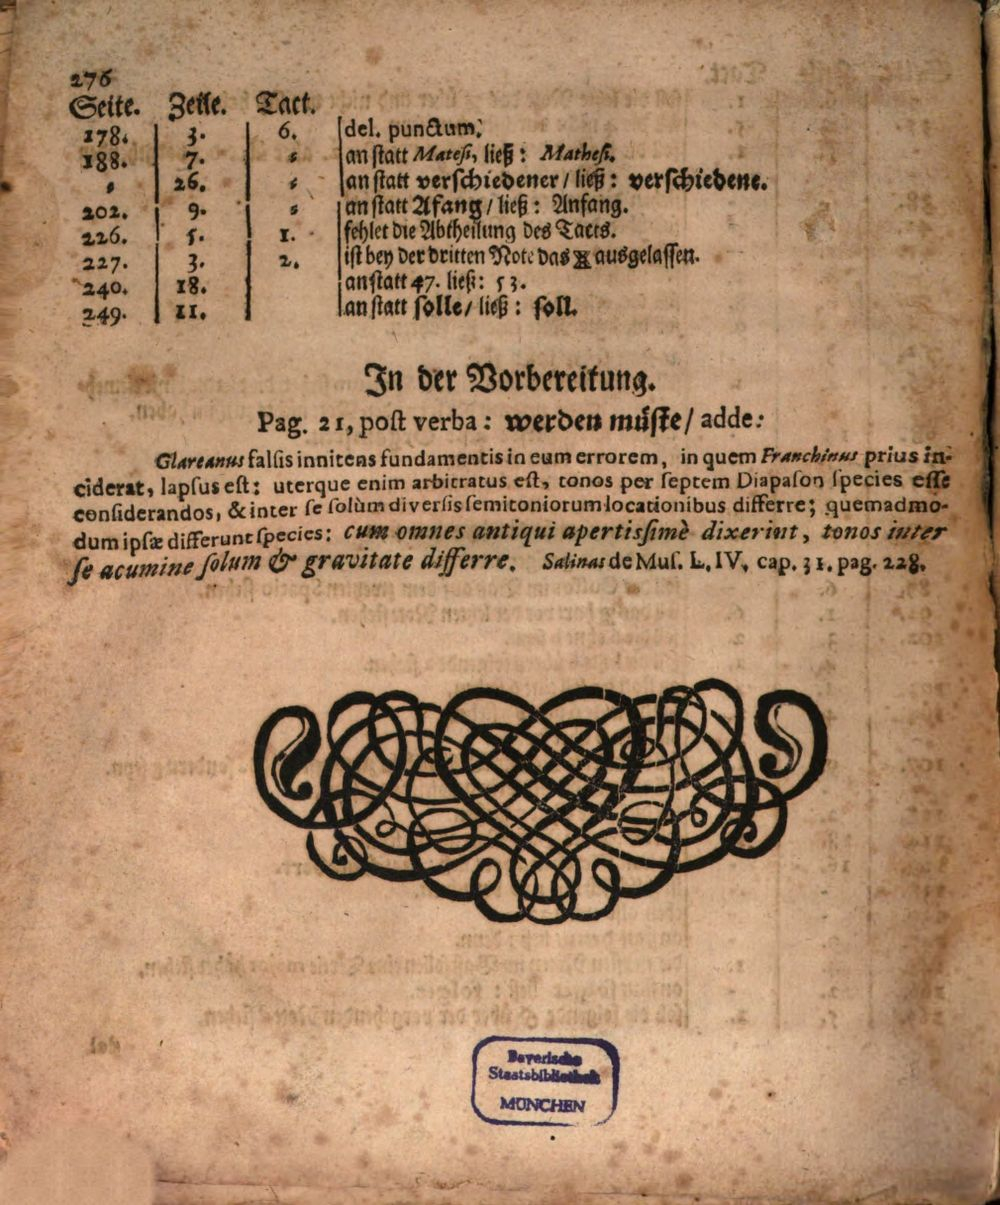 276
Seite. Zeile. Tact.
178. 3. 6. del. punctum.
188. 7. = an statt Matesi, ließ: Mathes.
= 26. = an statt verschiedener / ließ: verschiedene.
202. 9. = an statt Afang / ließ: Anfang.
226. 5. 1. fehlet die Abtheilung des Tacts.
227. 3. 2. ist bey der dritten Note das ausgelassen.
240. 18. an statt 47. ließ: 53.
249. 11. an statt solle / ließ: soll.
In der Vorbereitung.
Pag. 21, post verba: werden müste / adde:
Glareanus falsis innitens fundamentis in eum errorem, in quem Franchinus prius in-
ciderat, lapsus est; uterque enim arbitratus est, tonos per septem Diapason species esse
considerandos, & inter se solùm diversis semitoniorum locationibus differre; quemadmo-
dum ipsæ differunt species: cum omnes antiqui apertissimè dixerint, tonos inter
se acumine solum & gravitate differre. Salinas de Mus. L. IV, cap. 31. pag. 228.
Bayerische
Staatsbibliothek
MÜNCHEN